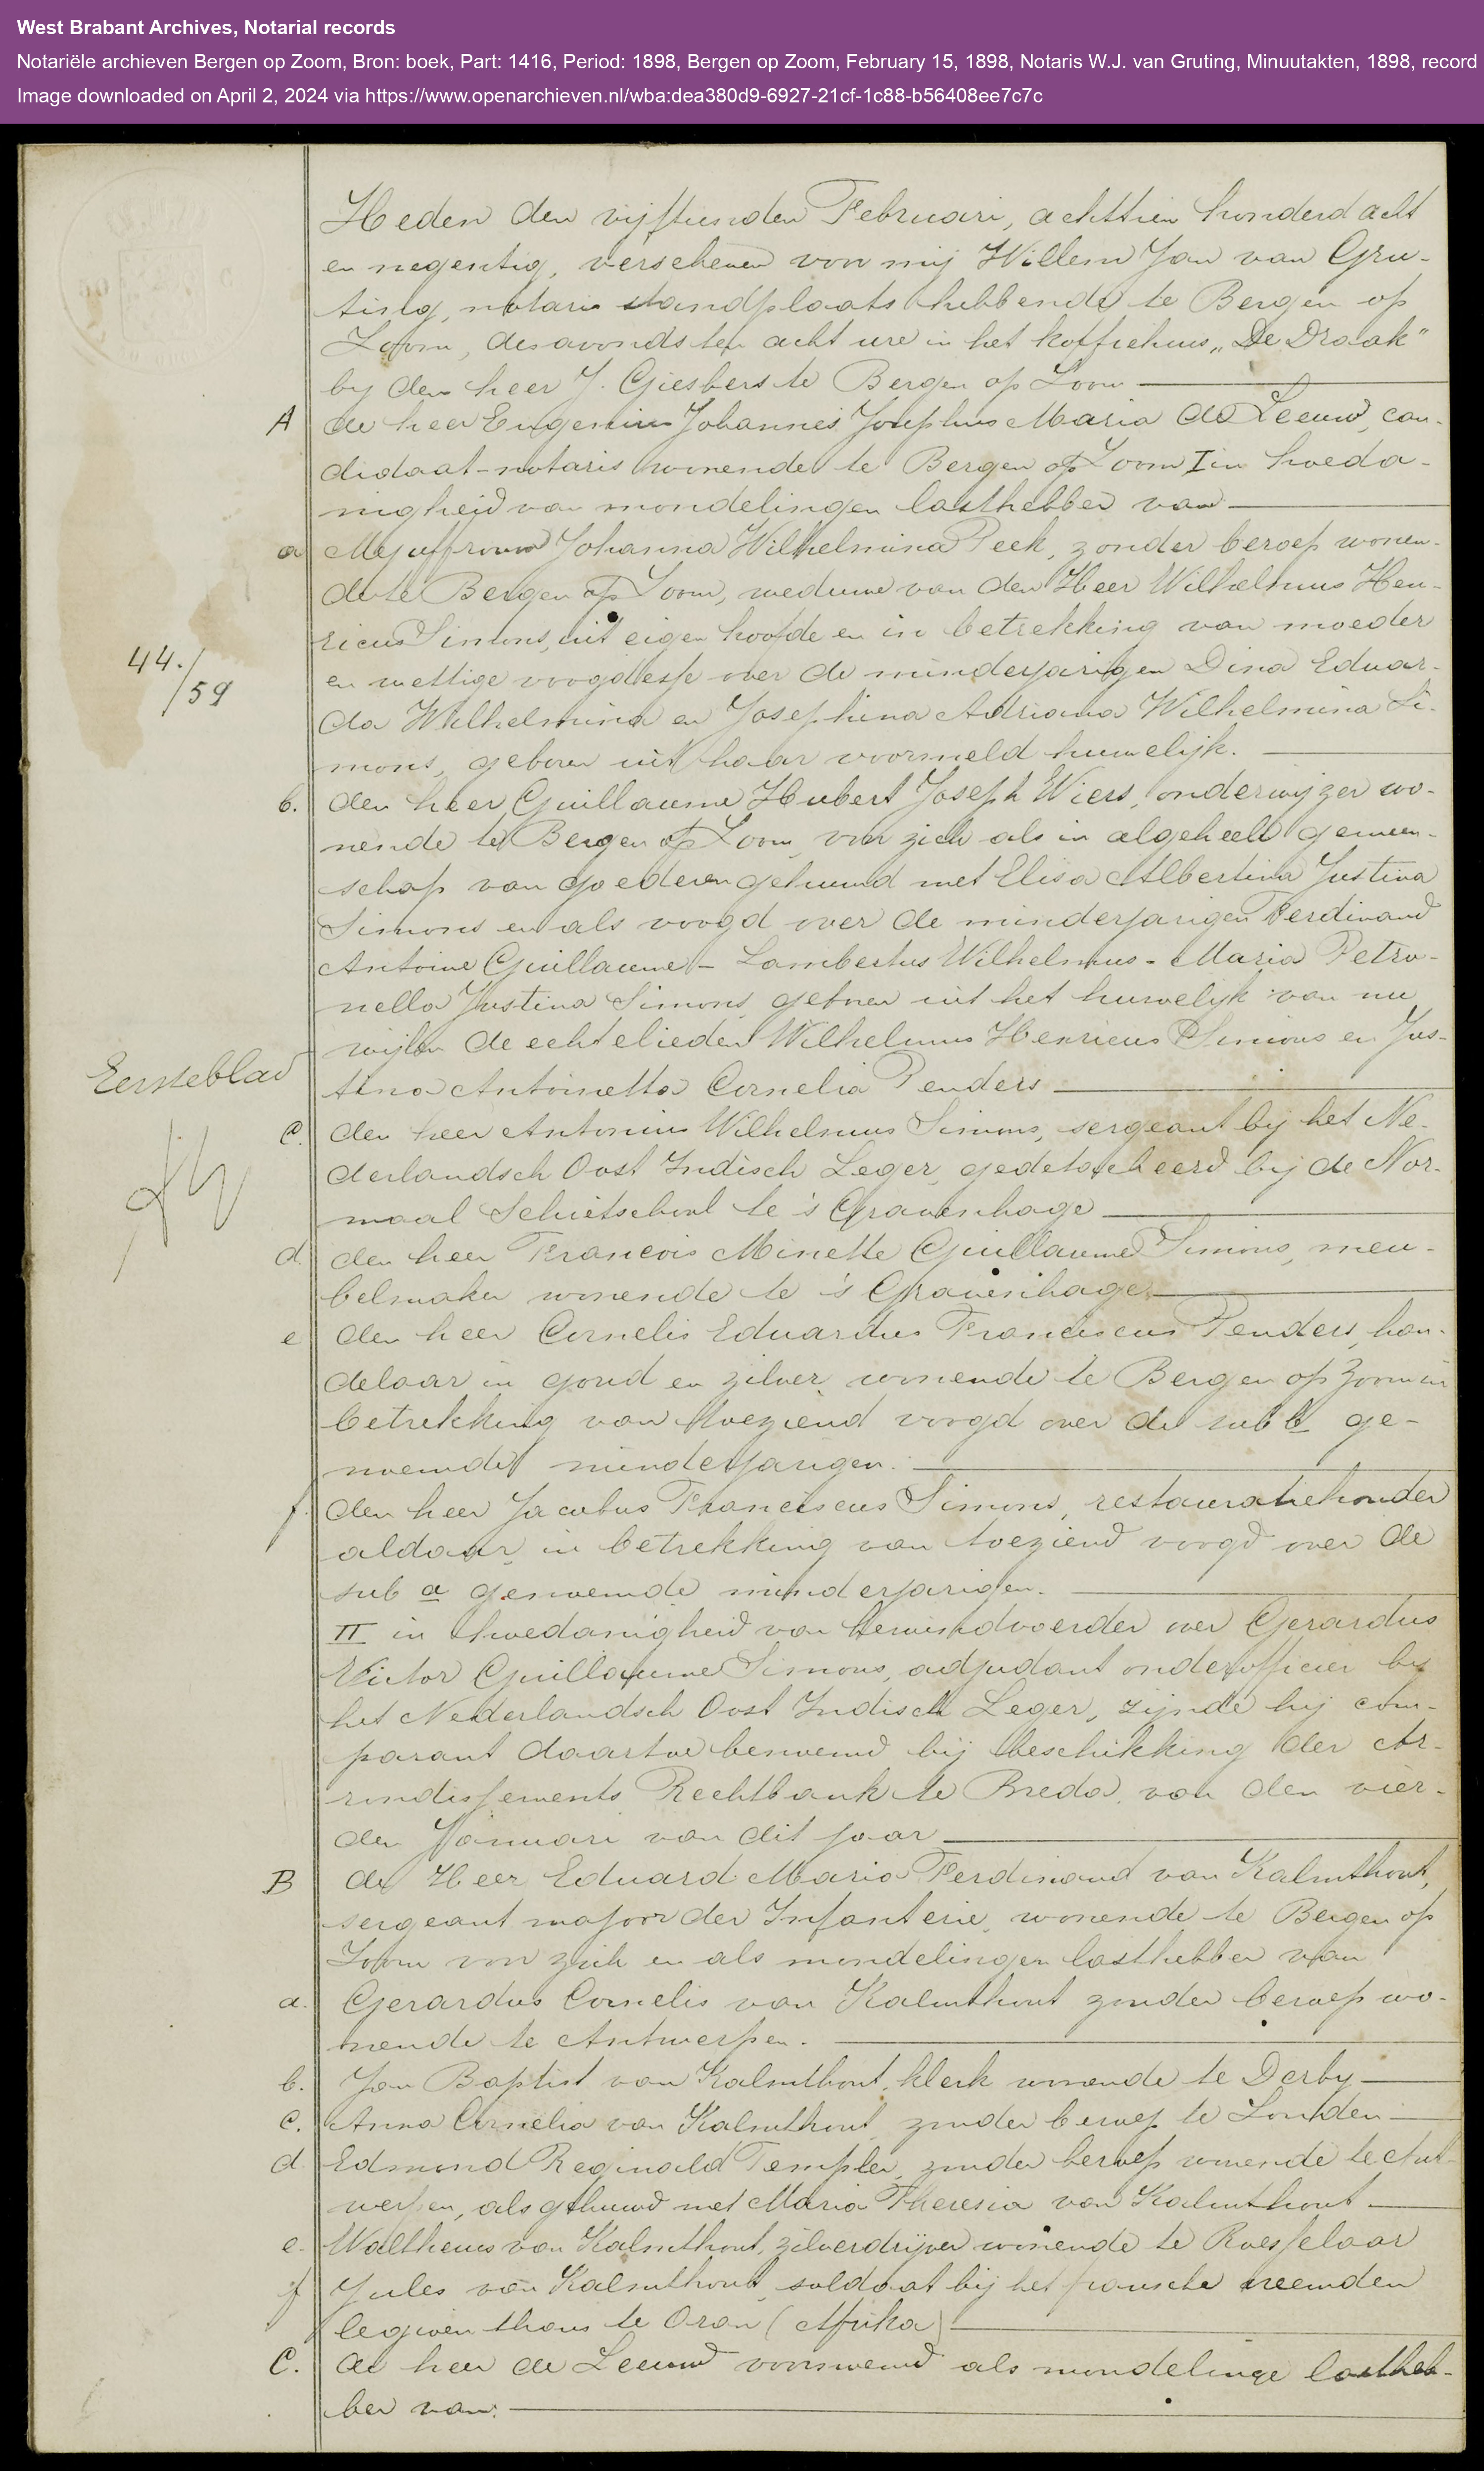 West Brabant Archives, Notarial records
Notariële archieven Bergen op Zoom, Bron: boek, Part: 1416, Period: 1898, Bergen op Zoom, February 15, 1898, Notaris W.J. van Gruting, Minuutakten, 1898, record
Image downloaded on April 2, 2024 via https://www.openarchieven.nl/wba:dea380d9-6927-21cf-1c88-b56408ee7c7c
Heden den vijftienden Februari, achttien honderd acht
en negentig, verschenen voor mij Willem Jan van Gru-
ting, notaris standplaats hebbende te Bergen op
Zoom, des avonds ten acht ure in het koffiehuis „De Draak"
by den heer J. Giesbers te Bergen op Zoom
A de heer Eugenius Johannes Josephus Maria de Leeuw, can-
didaat-notaris wonende te Bergen op Zoom I in hoeda-
nigheid van mondelingen lasthebber van
a Mejuffrouw Johanna Wilhelmina Peek, zonder beroep wonen-
de te Bergen op Zoom, weduwe van den Heer Wilhelmus Hen-
ricus Simons, uit eigen hoofde en in betrekking van moeder
en wettige voogdesse over de minderjarigen Dina Eduar-
da Wilhelmina en Josephina Adriana Wilhelmina Si-
mons, geboren uit haar voormeld huwelijk.
44./59
b. den heer Guillaume Hubert Joseph Wiers, onderwijzer wo-
nende te Bergen op Zoom, voor zich als in algeheele gemeen-
schap van goederen gehuwd met Elisa Albertina Justina
Simons en als voogd over de minderjarigen Ferdinand
Antoine Guillaume - Lambertus Wilhelmus - Maria Petro-
nella Justina Simons, geboren uit het huwelijk van nu
wijlen de echtelieden Wilhelmus Henricus Simons en Jus-
tina Antoinetta Cornelia Penders
Eersteblad
c. den heer Antonius Wilhelmus Simons, sergeant by het Ne-
derlandsch Oost Indisch Leger, gedetacheerd bij de Nor-
maal Schietschool te 's Gravenhage
d. den heer Francois Minette Guillaume Simons, meu-
belmaker wonende te 's Gravenhage
e den heer Cornelis Eduardus Franciscus Penders, han-
delaar in goud en zilver, wonende te Bergen op Zoom in
betrekking van toeziend voogd over de sub b ge-
noemde minderjarigen.
f. den heer Jacobus Franciscus Simons, restauratiehouder
aldaar, in betrekking van toeziend voogd over de
sub a genoemde minderjarigen.
II in hoedanigheid van bewindvoerder over Gerardus
Victor Guillaume Simons, adjudant onderofficier by
het Nederlandsch Oost Indisch Leger, zijnde hij com-
parant daartoe benoemd bij beschikking der Ar-
rondissements Rechtbank te Breda, van den vier-
den Januari van dit jaar
B de Heer Eduard Maria Ferdinand van Kalmthout,
sergeant majoor der Infanterie, wonende te Bergen op
Zoom voor zich en als mondelingen lasthebber van
a. Gerardus Cornelis van Kalmthout zonder beroep wo-
nende te Antwerpen.
b. Jan Baptist van Kalmthout, klerk wonende te Derby
c. Anna Cornelia van Kalmthout, zonder beroep te Londen
d Edmond Reginald Templer, zonder beroep wonende te Ant-
werpen, als gehuwd met Maria Theresia van Kalmthout
e. Waltherus van Kalmthout, zilverdrijver wonende te Roesselaar
f Jules van Kalmthout, soldaat bij het fransche vreemden
legioen thans te Oran (Afrika)
C. de heer de Leeuw voornoemd als mondelinge lastheb-
ber van: